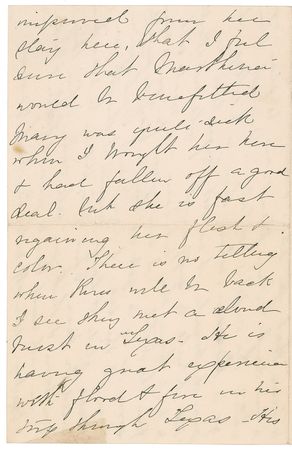 improved from her
stay here, that I feel
sure that
would be benefitted
Mary was quite sick
when I brought her here
& had fallen off a good
deal. but she is fast
regaining her flesh &
color. There is no telling
when will be back
I see they met a cloud
burst in Texas. He is
having great experience
with flood & fire in his
trip through Texas. His